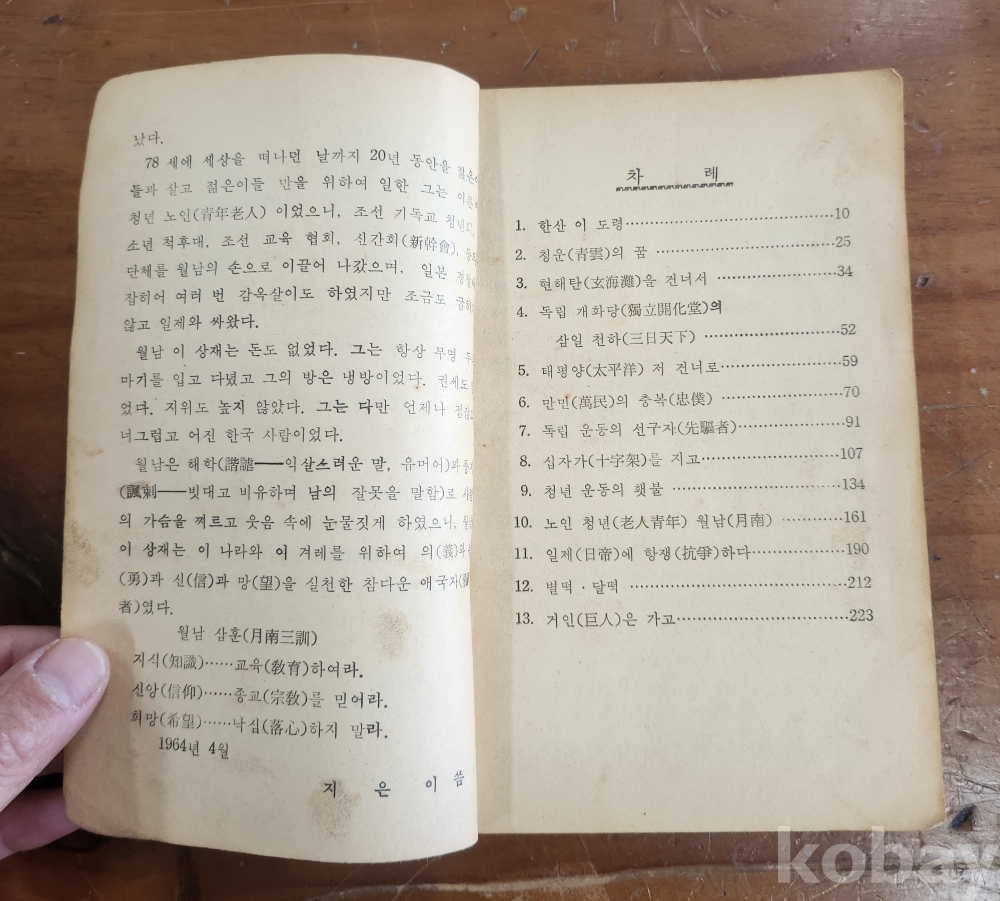 났다.
78 세에 세상을 떠나던 날까지 20년 동안을 젊은이
들과 살고 젊은이들 만을 위하여 일한 그는 이른
청년 노인(青年老人) 이었으니, 조선 기독교 청년
소년 척후대, 조선 교육 협회, 신간회(新幹會), 등
단체를 월남의 손으로 이끌어 나갔으며, 일본 경찰에
잡히어 여러 번 감옥살이도 하였지만 조금도 급하
않고 일제와 싸왔다.
월남 이 상재는 돈도 없었다. 그는 항상 무명
마기를 입고 다녔고 그의 방은 냉방이었다. 권세도
었다. 지위도 높지 않았다. 그는 다만 언제나 점잖
너그럽고 어진 한국 사람이었다.
월남은 해학(諧謔──익살스러운 말, 유머어)과 풍
(諷刺──빗대고 비유하며 남의 잘못을 말함)로
의 가슴을 찌르고 웃음 속에 눈물짓게 하였으니, 월남
이 상재는 이 나라와 이 겨레를 위하여 의(義)와
(勇)과 신(信)과 망(望)을 실천한 참다운 애국자(
者)였다.
월남 삼훈(月南三訓)
지식(知識)……교육(敎育)하여라.
신앙(信仰)……종교(宗敎)를 믿어라.
희망(希望)……낙심(落心)하지 말라.
1964년 4월
지 은 이 씀
차 례
1. 한산 이 도령……………………………10
2. 청운(青雲)의 꿈……………………………25
3. 현해탄(玄海灘)을 건너서……………………34
4. 독립 개화당(獨立開化堂)의
삼일 천하(三日天下)……………………52
5. 태평양(太平洋) 저 건너로…………………59
6. 만민(萬民)의 충복(忠僕)……………………70
7. 독립 운동의 선구자(先驅者)………………91
8. 십자가(十字架)를 지고……………………107
9. 청년 운동의 횃불……………………………134
10. 노인 청년(老人青年) 월남(月南)……………161
11. 일제(日帝)에 항쟁(抗爭)하다………………190
12. 별떡·달떡……………………………212
13. 거인(巨人)은 가고……………………………223
kobay